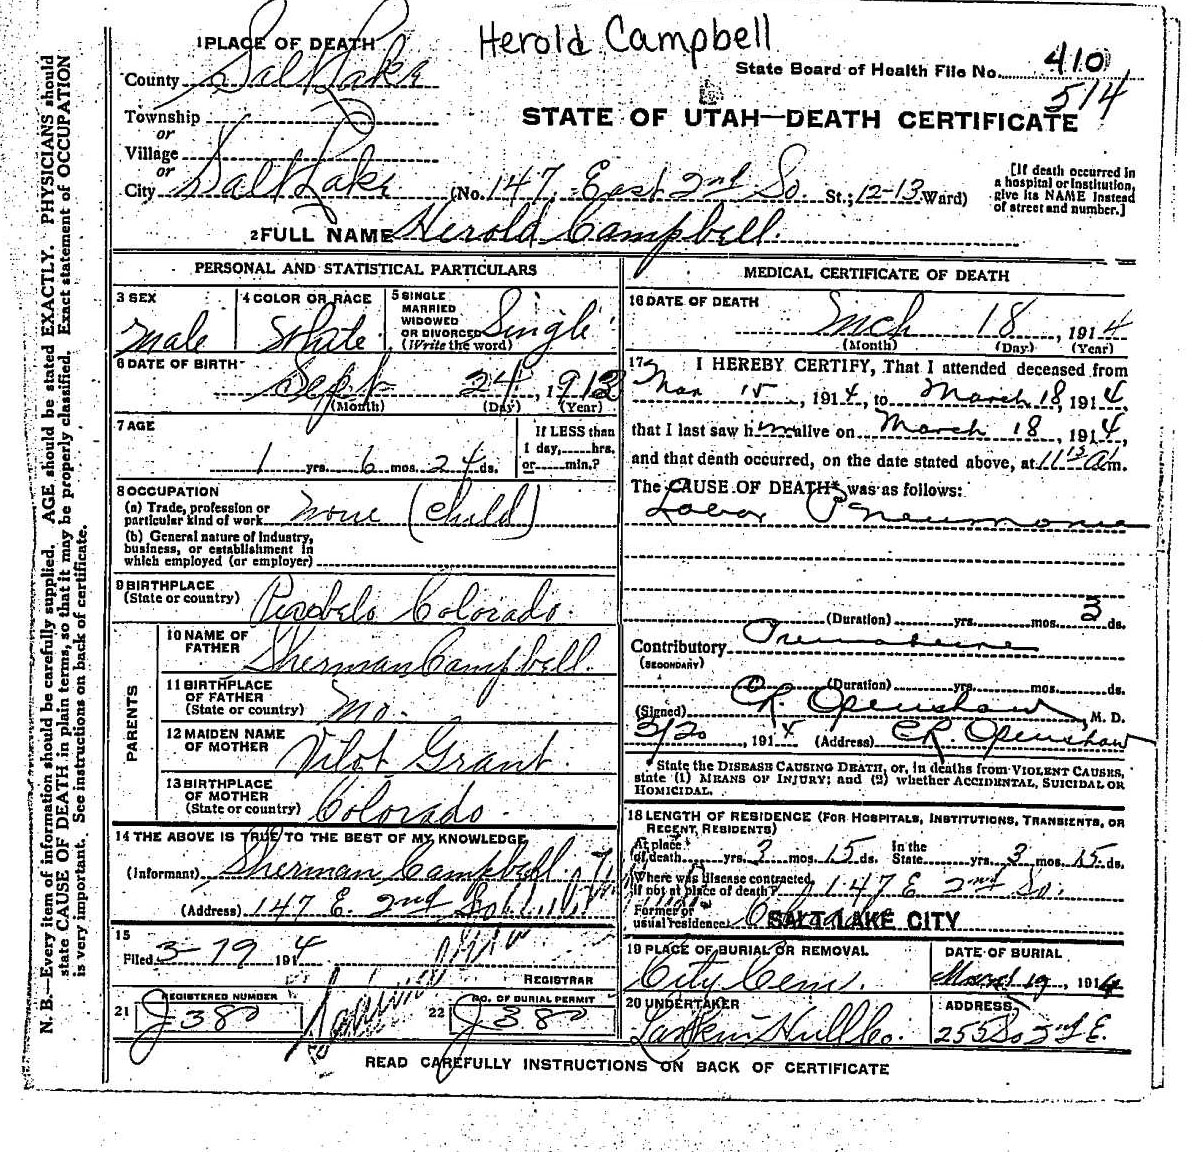 Herold Campbell
1 PLACE OF DEATH
County Salt Lake
State Board of Health File No. 410
514
Township
or
Village
or
STATE OF UTAH—DEATH CERTIFICATE
City Salt Lake (No. 147 East 2nd So. St.; 12-13 Ward)
[If death occurred in
a hospital or institution,
give its NAME instead
of street and number.]
2 FULL NAME Herold Campbell.
N. B.—Every item of information should be carefully supplied. AGE should be stated EXACTLY. PHYSICIANS should
state CAUSE OF DEATH in plain terms, so that it may be properly classified. Exact statement of OCCUPATION
is very important. See instructions on back of certificate.
PERSONAL AND STATISTICAL PARTICULARS
3 SEX
Male
4 COLOR OR RACE
White
5 SINGLE
MARRIED
WIDOWED
OR DIVORCED
(Write the word)
Single
6 DATE OF BIRTH
Sept 24, 1912
(Month) (Day) (Year)
7 AGE
1 yrs. 6 mos. 24 ds.
If LESS than
1 day,......hrs.
or......min.?
8 OCCUPATION
(a) Trade, profession or
particular kind of work None (Child)
(b) General nature of Industry,
business, or establishment in
which employed (or employer)
9 BIRTHPLACE
(State or country) Colorado.
PARENTS
10 NAME OF
FATHER Sherman Campbell.
11 BIRTHPLACE
OF FATHER
(State or country) Mo.
12 MAIDEN NAME
OF MOTHER Vilot Grant.
13 BIRTHPLACE
OF MOTHER
(State or country) Colorado.
14 THE ABOVE IS TRUE TO THE BEST OF MY KNOWLEDGE
(Informant) Sherman Campbell
(Address) 147 E. 2nd So
15
Filed 3-19 1914
REGISTRAR
21 REGISTERED NUMBER
J 380
22 NO. OF BURIAL PERMIT
J 380
MEDICAL CERTIFICATE OF DEATH
16 DATE OF DEATH
Mch 18, 1914
(Month) (Day) (Year)
17 I HEREBY CERTIFY, That I attended deceased from
Mar 15, 1914, to March 18, 1914,
that I last saw him alive on March 18, 1914,
and that death occurred, on the date stated above, at 11 15 a m.
The CAUSE OF DEATH* was as follows:
Lobar Pneumonia
(Duration) yrs. mos. 3 ds.
Contributory
(SECONDARY)
(Duration) yrs. mos. ds.
(Signed) CR. Openshaw, M. D.
3/20, 1914 (Address) CR. Openshaw
*State the DISEASE CAUSING DEATH, or, in deaths from VIOLENT CAUSES,
state (1) MEANS OF INJURY; and (2) whether ACCIDENTAL, SUICIDAL OR
HOMICIDAL.
18 LENGTH OF RESIDENCE (FOR HOSPITALS, INSTITUTIONS, TRANSIENTS, OR
RECENT RESIDENTS)
At place
of death yrs. 3 mos. 15 ds. In the
State yrs. 3 mos. 15 ds.
Where was disease contracted,
If not at place of death? 147 E 2nd So.
Former or
usual residence SALT LAKE CITY
19 PLACE OF BURIAL OR REMOVAL
City Cem.
DATE OF BURIAL
March 19, 1914
20 UNDERTAKER
Larkin Hull Co.
ADDRESS
255 So 2nd E.
READ CAREFULLY INSTRUCTIONS ON BACK OF CERTIFICATE